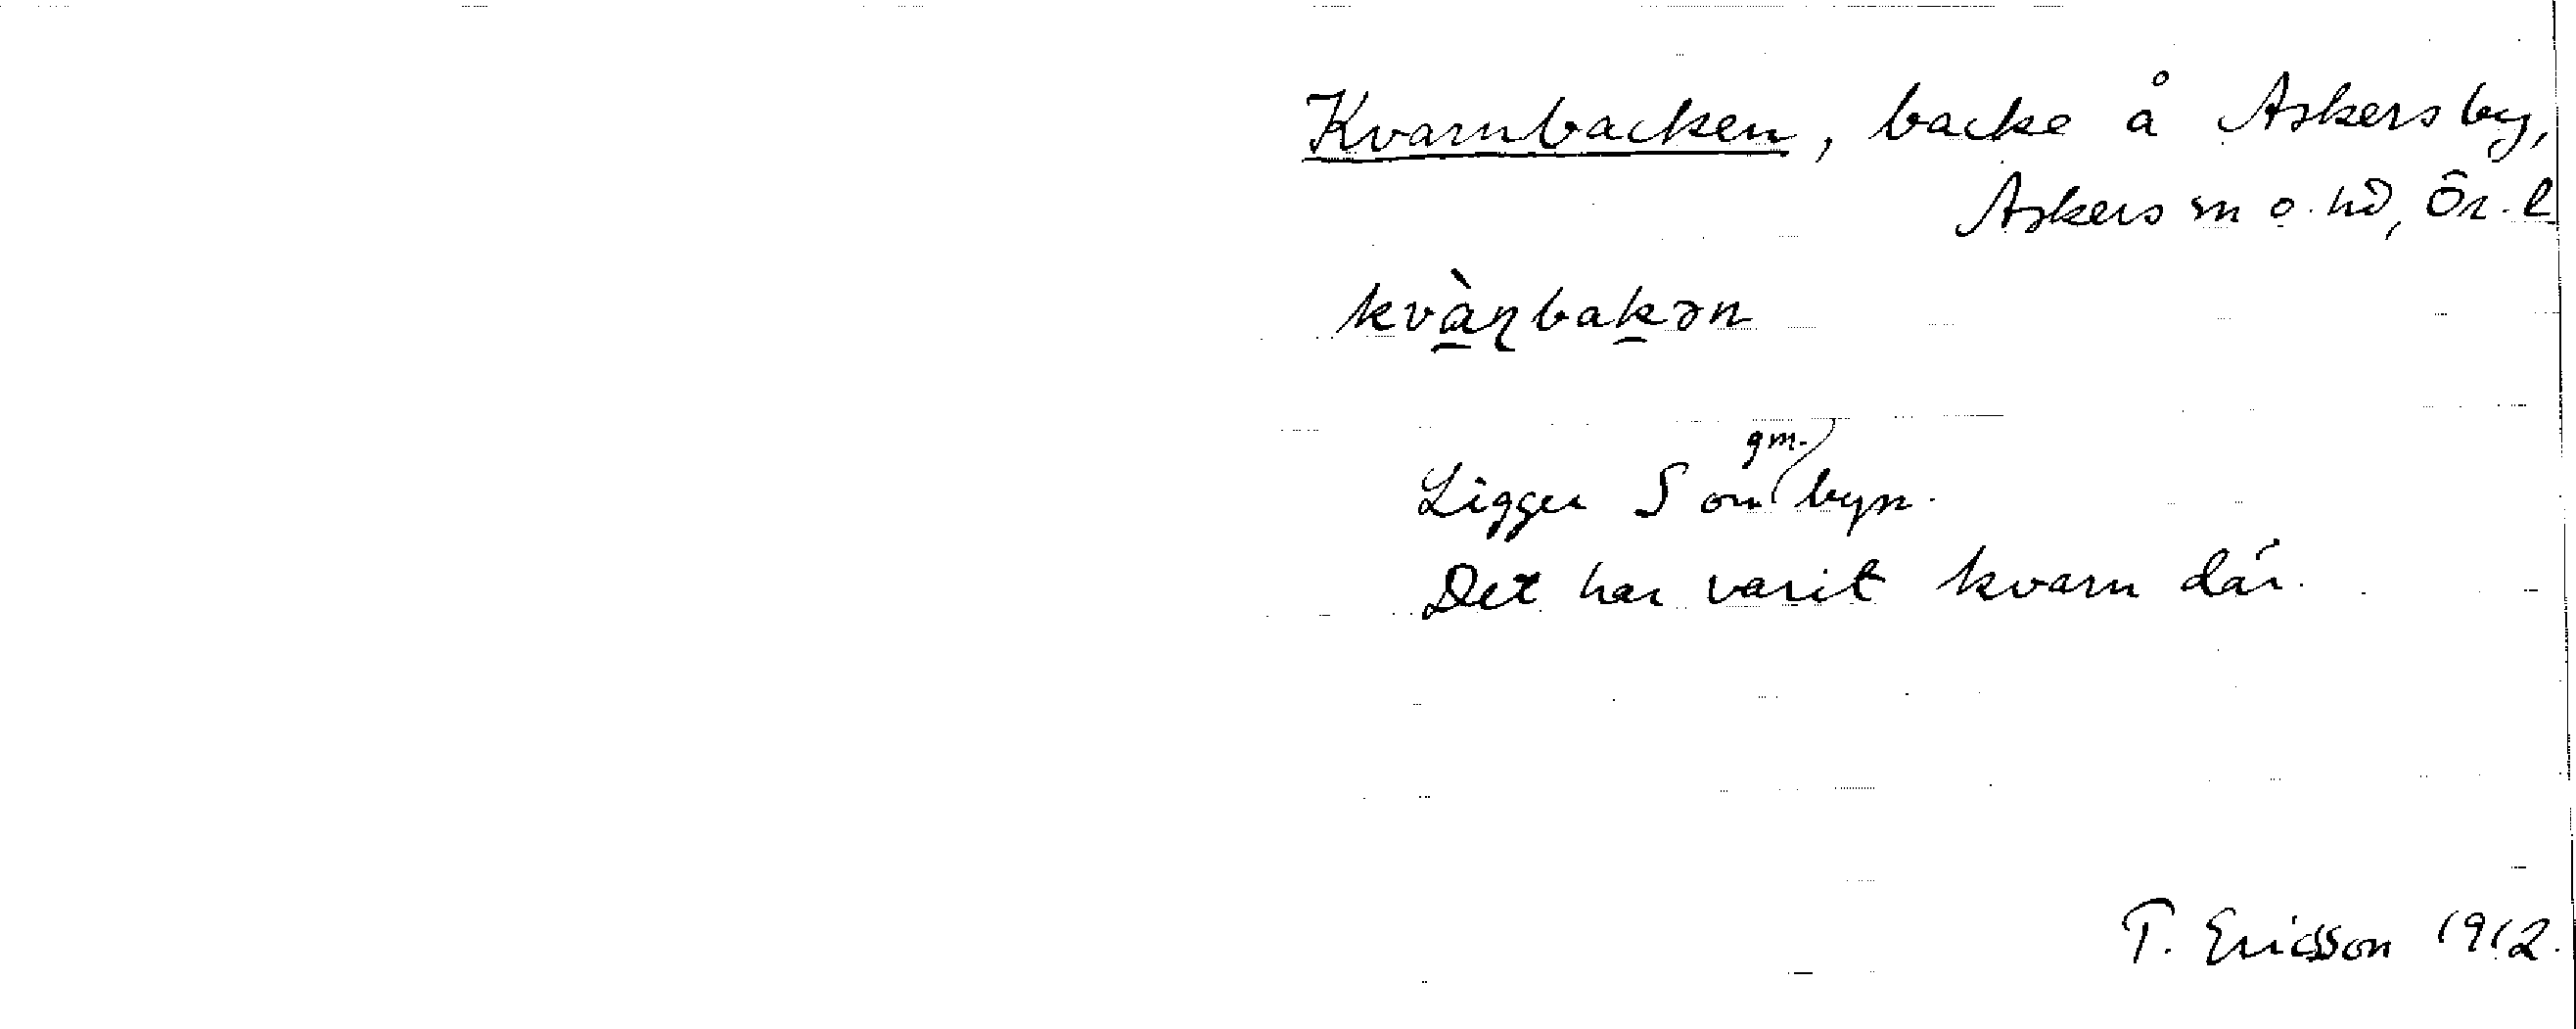 Kvarnbacken, backe å Askersby,
Askers sn o. hd, Ör. l
kvàɳbakən
Ligger S om gm. byn.
Det har varit kvarn där.
T. Ericsson 1912.